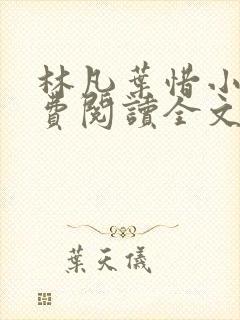 林凡葉惜小
費閱讀全文
葉天儀